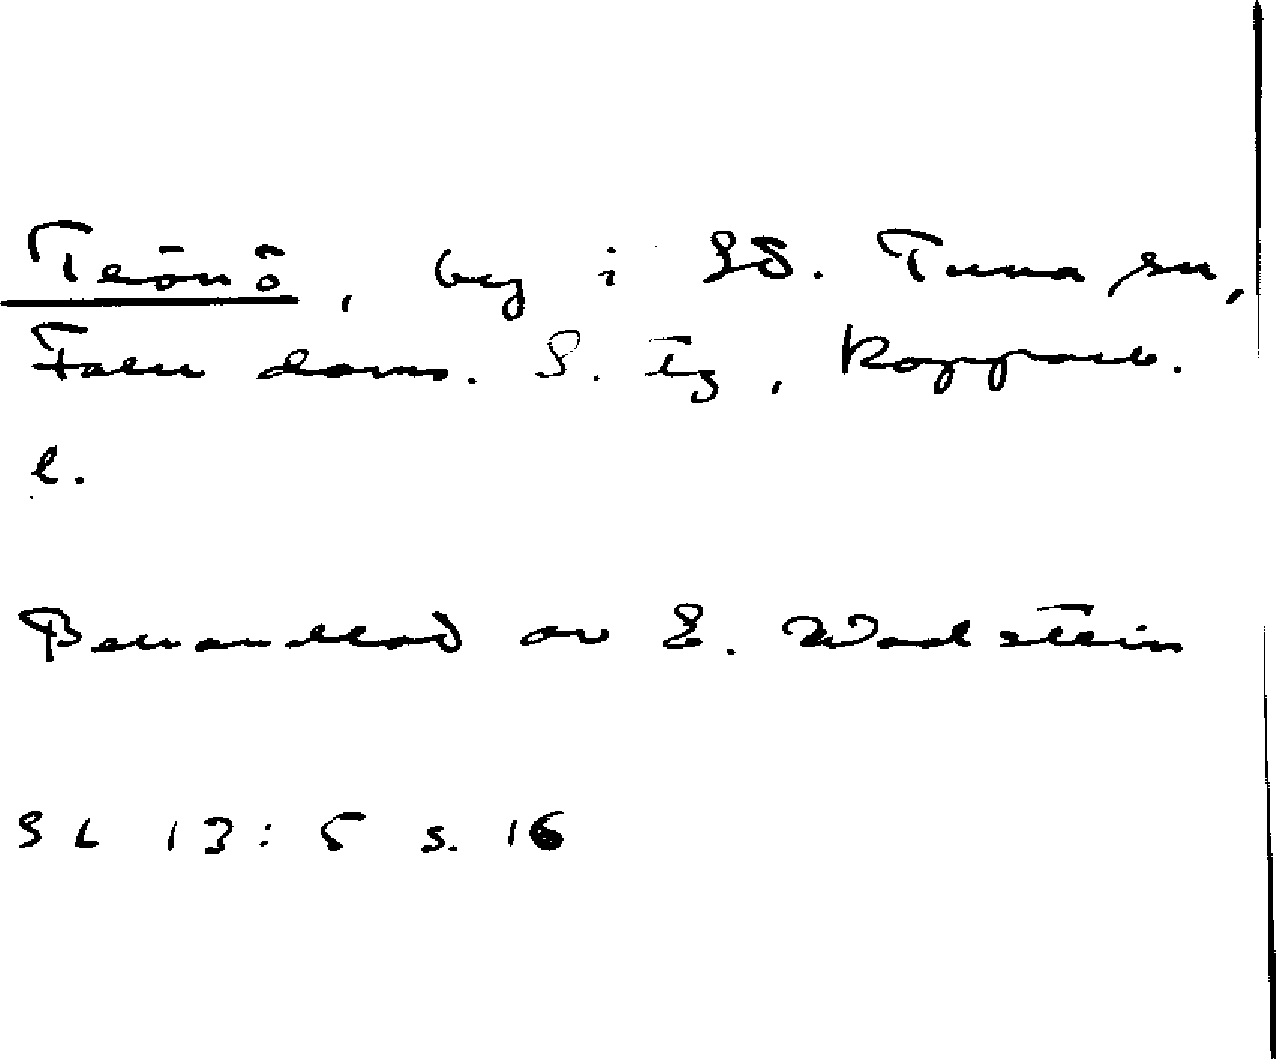 Tjärnö, by i St. Tuna sn,
Falu doms. S. tg, Kopparb.
l.
Behandlad av E. Wadstein
SL 13:5 s. 16